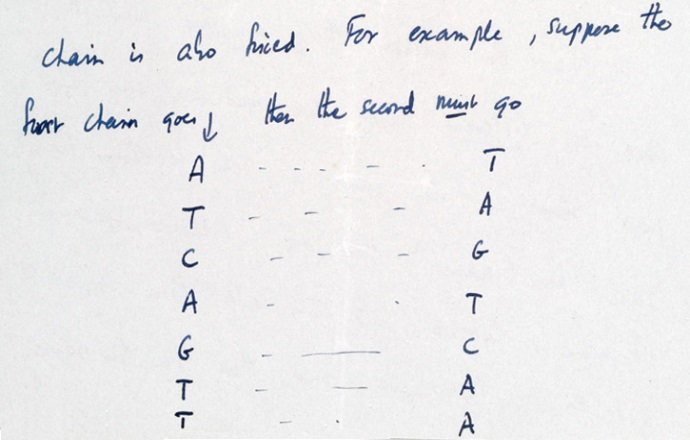 chain is also fixed. For example, suppose the
first chain goes ↓ then the second must go
A - - - - . T
T - - - A
C - - - - G
A - . T
G - — C
T - — A
T - . A